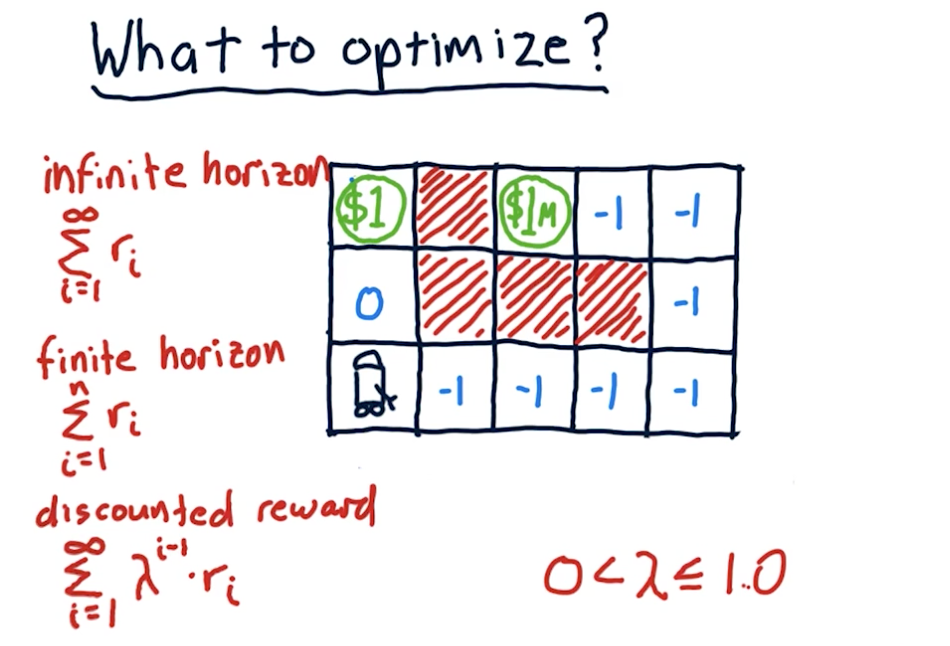 What to optimize?
infinite horizon
∞
Σ rᵢ
i=1
finite horizon
n
Σ rᵢ
i=1
discounted reward
∞
Σ λⁱ⁻¹·rᵢ
i=1
$1 $1M -1 -1
0 -1
-1 -1 -1 -1
0<λ≤1.0